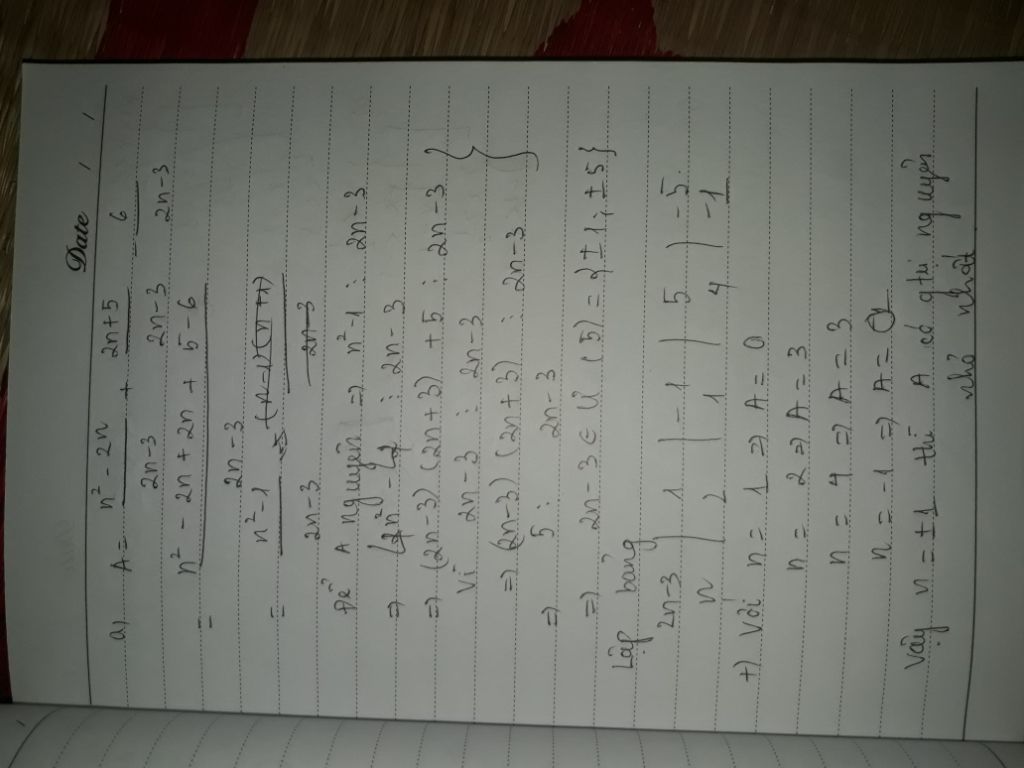 Date / /
a) A = n² - 2n / 2n-3 + 2n+5 / 2n-3 - 6 / 2n-3
= n² - 2n + 2n + 5 - 6 / 2n-3
= n² - 1 / 2n-3
Để A nguyên => n²-1 ⋮ 2n-3
=> 4n² - 4 ⋮ 2n-3
=> (2n-3)(2n+3) + 5 ⋮ 2n-3 }
Vì 2n-3 ⋮ 2n-3
=> (2n-3)(2n+3) ⋮ 2n-3 }
=> 5 ⋮ 2n-3
=> 2n-3 ∈ Ư(5) = {±1; ±5}
Lập bảng
2n-3 | 1 | -1 | 5 | -5.
n | 2 | 1 | 4 | -1
+) Với n = 1 => A = 0
n = 2 => A = 3
n = 4 => A = 3
n = -1 => A = 0
Vậy n = ±1 thì A có gtri nguyên
nhỏ nhất